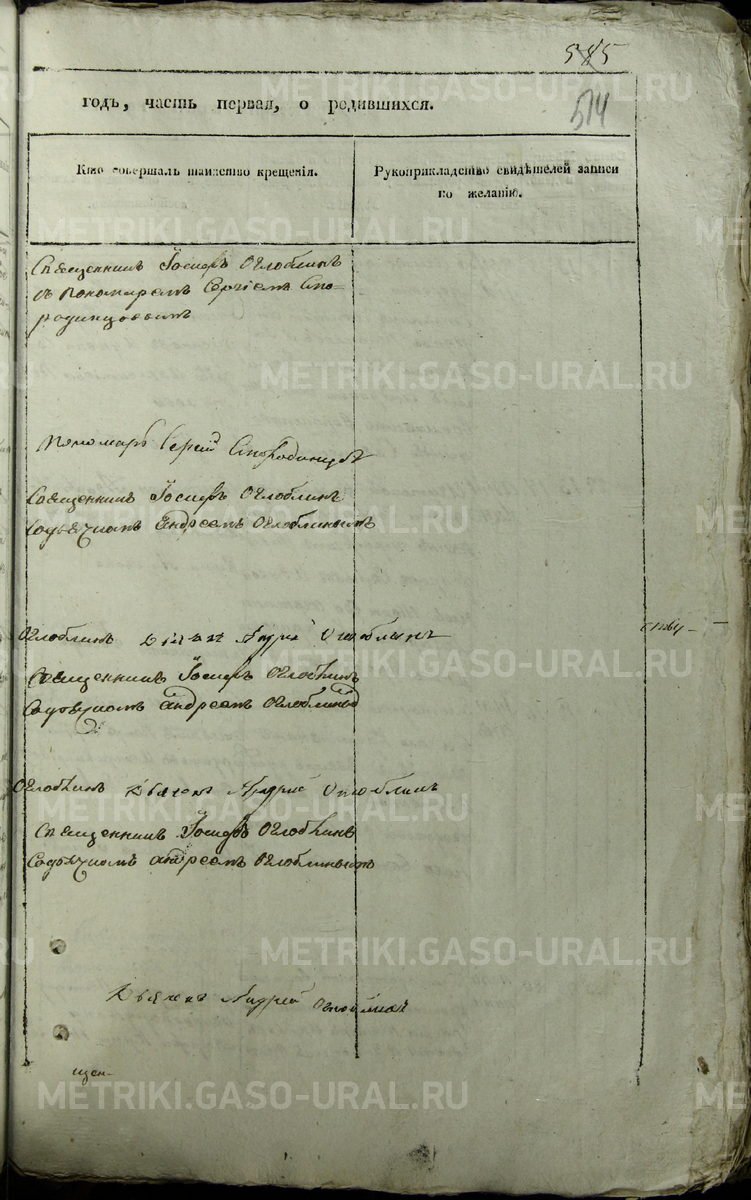 585
514
годъ, часть первая, о родившихся.
Кто совершалъ таинство крещенія.
Рукоприкладство свидѣтелей записи
по желанію.
Священникъ Іосифъ Оглоблинъ
съ Пономаремъ Сергіемъ Сто-
родинцовымъ
Пономарь Сергій
Священникъ Іосифъ Оглоблинъ
Андреемъ Оглоблинымъ
Оглоблинъ Андрей Оглоблинъ
Священникъ Іосифъ Оглоблинъ
Андреемъ Оглоблинымъ
Оглоблинъ Дьячекъ Андрей Оглоблинъ
Священникъ Іосифъ Оглоблинъ
Андреемъ Оглоблинымъ
Дьячекъ Андрей Оглоблинъ
щен-
METRIKI.GASO-URAL.RU